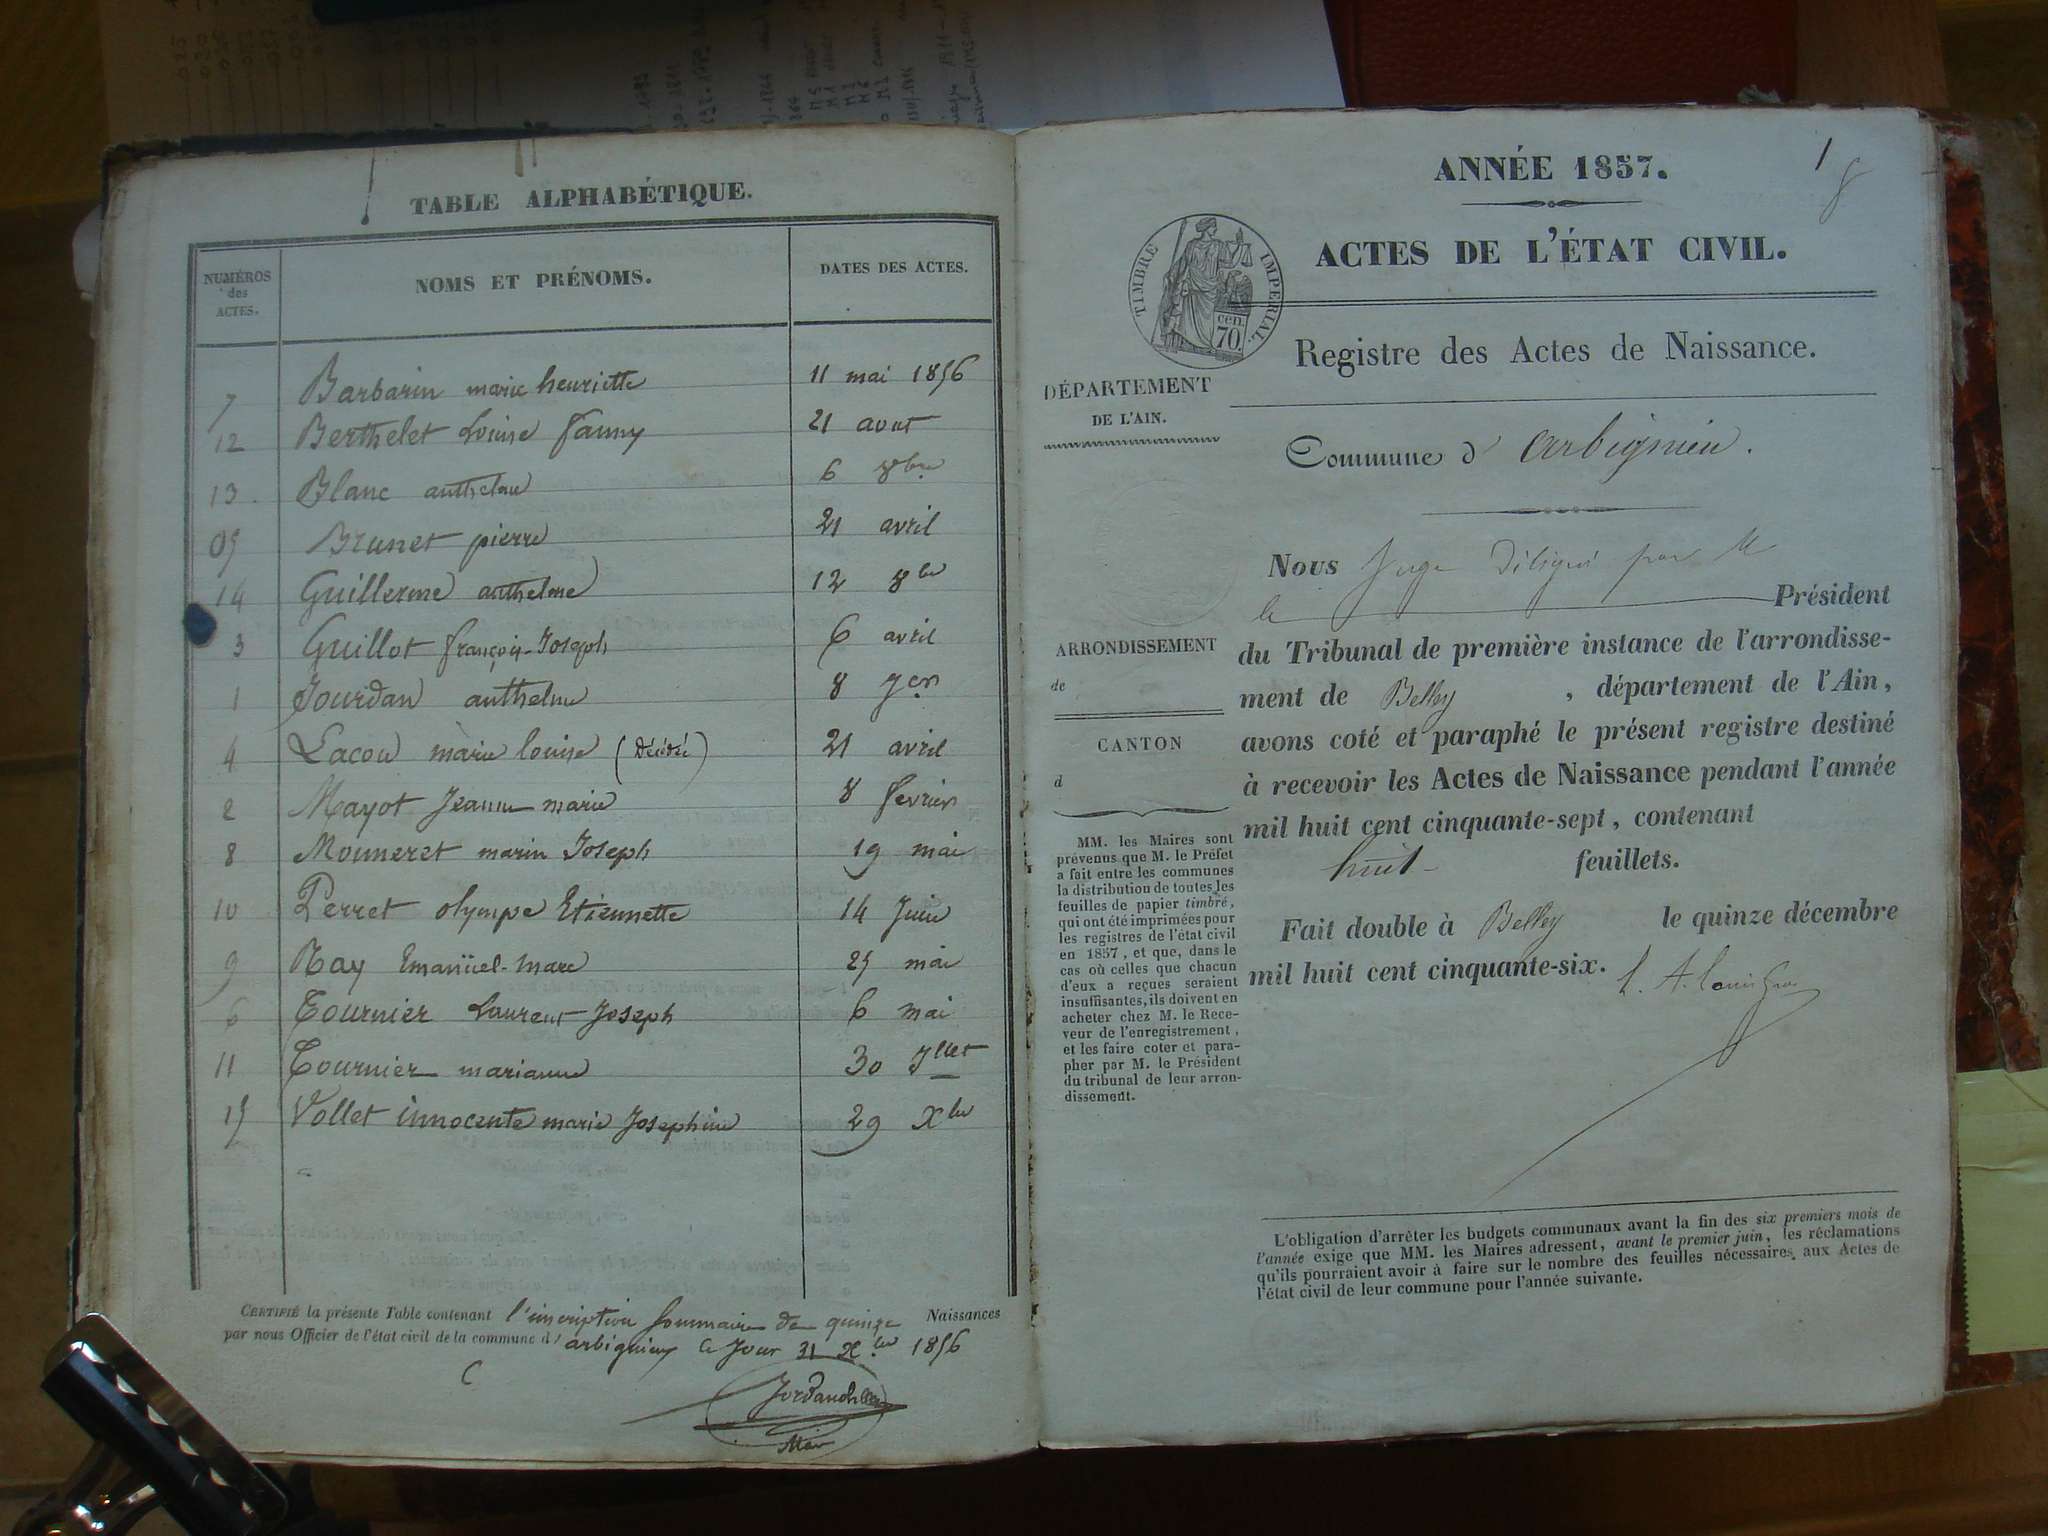 TABLE ALPHABÉTIQUE.
NUMÉROS des ACTES.
NOMS ET PRÉNOMS.
DATES DES ACTES.
7 Barbarin marie henriette 11 mai 1856
12 Berthelet Louise fanny 21 aout
13 Blanc anthelme 6 8bre
05 Brunet pierre 21 avril
14 Guillerme anthelme 12 8bre
3 Guillot françois-Joseph 6 avril
1 Jourdan anthelme 8 Jer
4 Lacou marie louise (Décédée) 21 avril
2 Mayot Jeanne marie 8 fevrier
8 Monneret marin Joseph 19 mai
10 Perret olympe Etiennette 14 Juin
9 Ray Emanüel-Marc 25 mai
6 Tournier Laurent Joseph 6 mai
11 Tournier marianne 30 Jllet
15 Vollet innocente marie Josephine 29 Xbre
CERTIFIÉ la présente Table contenant l'inscription sommaire de quinze Naissances
par nous Officier de l'état civil de la commune d'arbignieu ce Jour 31 Xbre 1856
Maire
1
8
ANNÉE 1857.
ACTES DE L'ÉTAT CIVIL.
TIMBRE IMPERIAL.
cen. 70.
Registre des Actes de Naissance.
DÉPARTEMENT
DE L'AIN.
Commune d'arbignieu.
Nous Juge Délégué par M
le Président
du Tribunal de première instance de l'arrondisse-
ment de Belley, département de l'Ain,
avons coté et paraphé le présent registre destiné
à recevoir les Actes de Naissance pendant l'année
mil huit cent cinquante-sept, contenant
huit feuillets.
Fait double à Belley le quinze décembre
mil huit cent cinquante-six.
ARRONDISSEMENT
de
CANTON
d
MM. les Maires sont
prévenus que M. le Préfet
a fait entre les communes
la distribution de toutes les
feuilles de papier timbré,
qui ont été imprimées pour
les registres de l'état civil
en 1857, et que, dans le
cas où celles que chacun
d'eux a reçues seraient
insuffisantes, ils doivent en
acheter chez M. le Rece-
veur de l'enregistrement,
et les faire coter et para-
pher par M. le Président
du tribunal de leur arron-
dissement.
L'obligation d'arrêter les budgets communaux avant la fin des six premiers mois de
l'année exige que MM. les Maires adressent, avant le premier juin, les réclamations
qu'ils pourraient avoir à faire sur le nombre des feuilles nécessaires aux Actes de
l'état civil de leur commune pour l'année suivante.